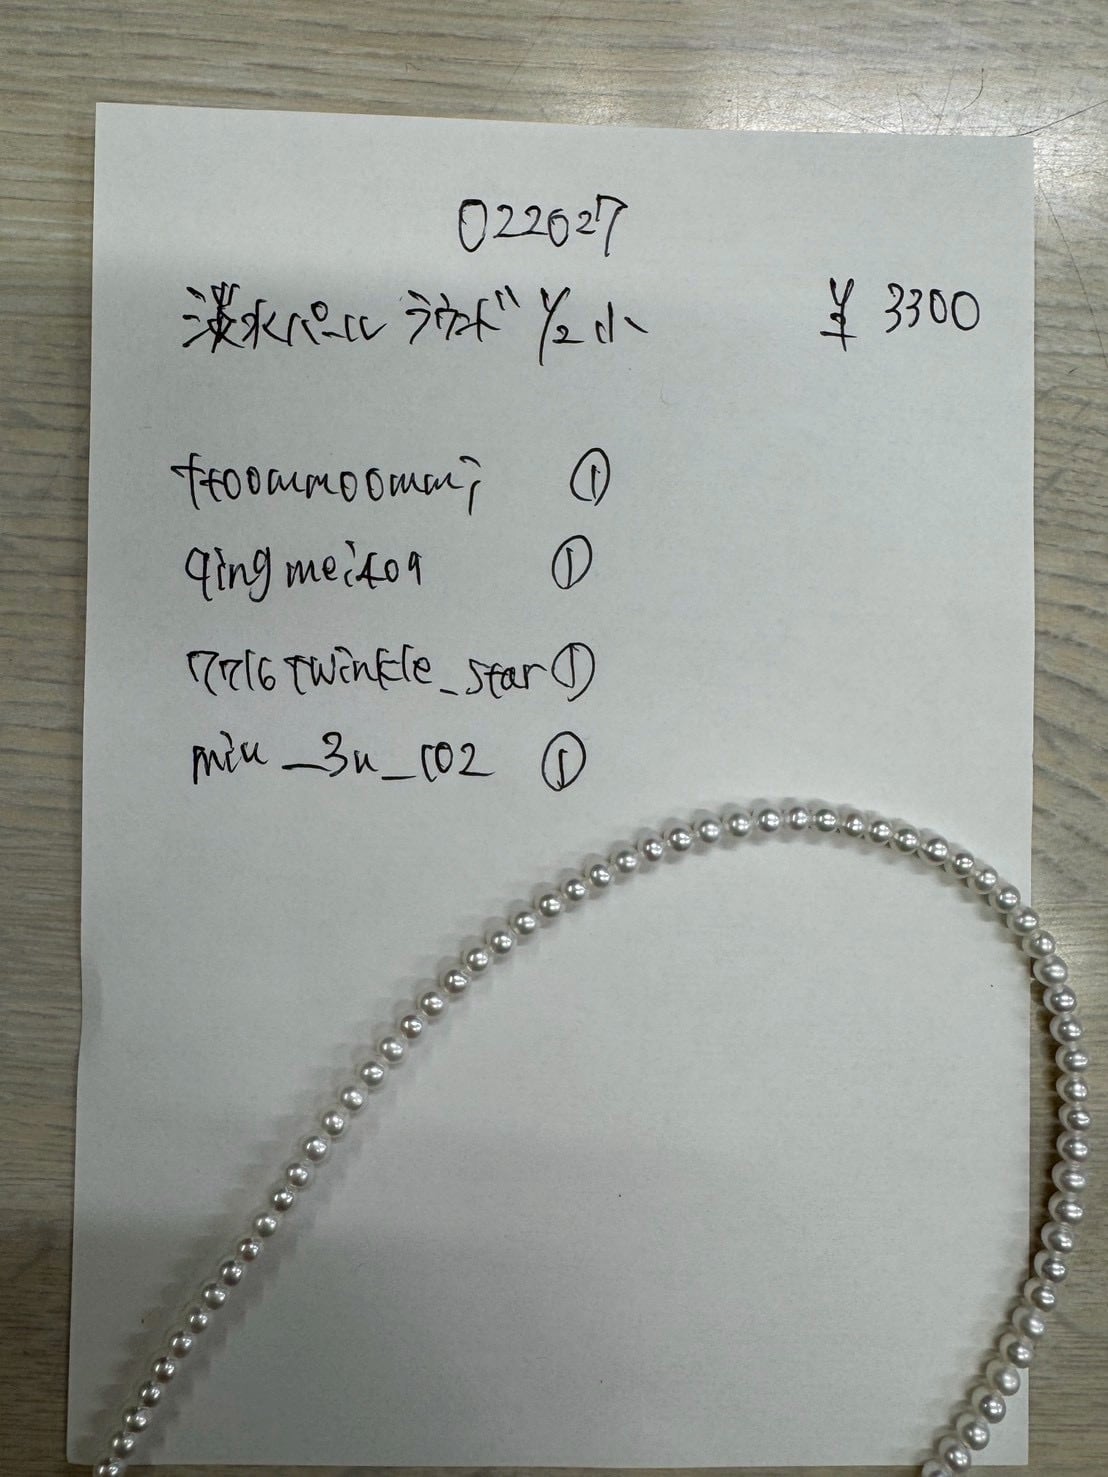 022027
淡水パール ラウンド 1/2 小 ¥3300
ttoommoommi ①
qingmeito9 ①
7716twinkle_star ①
miu_3u_102 ①